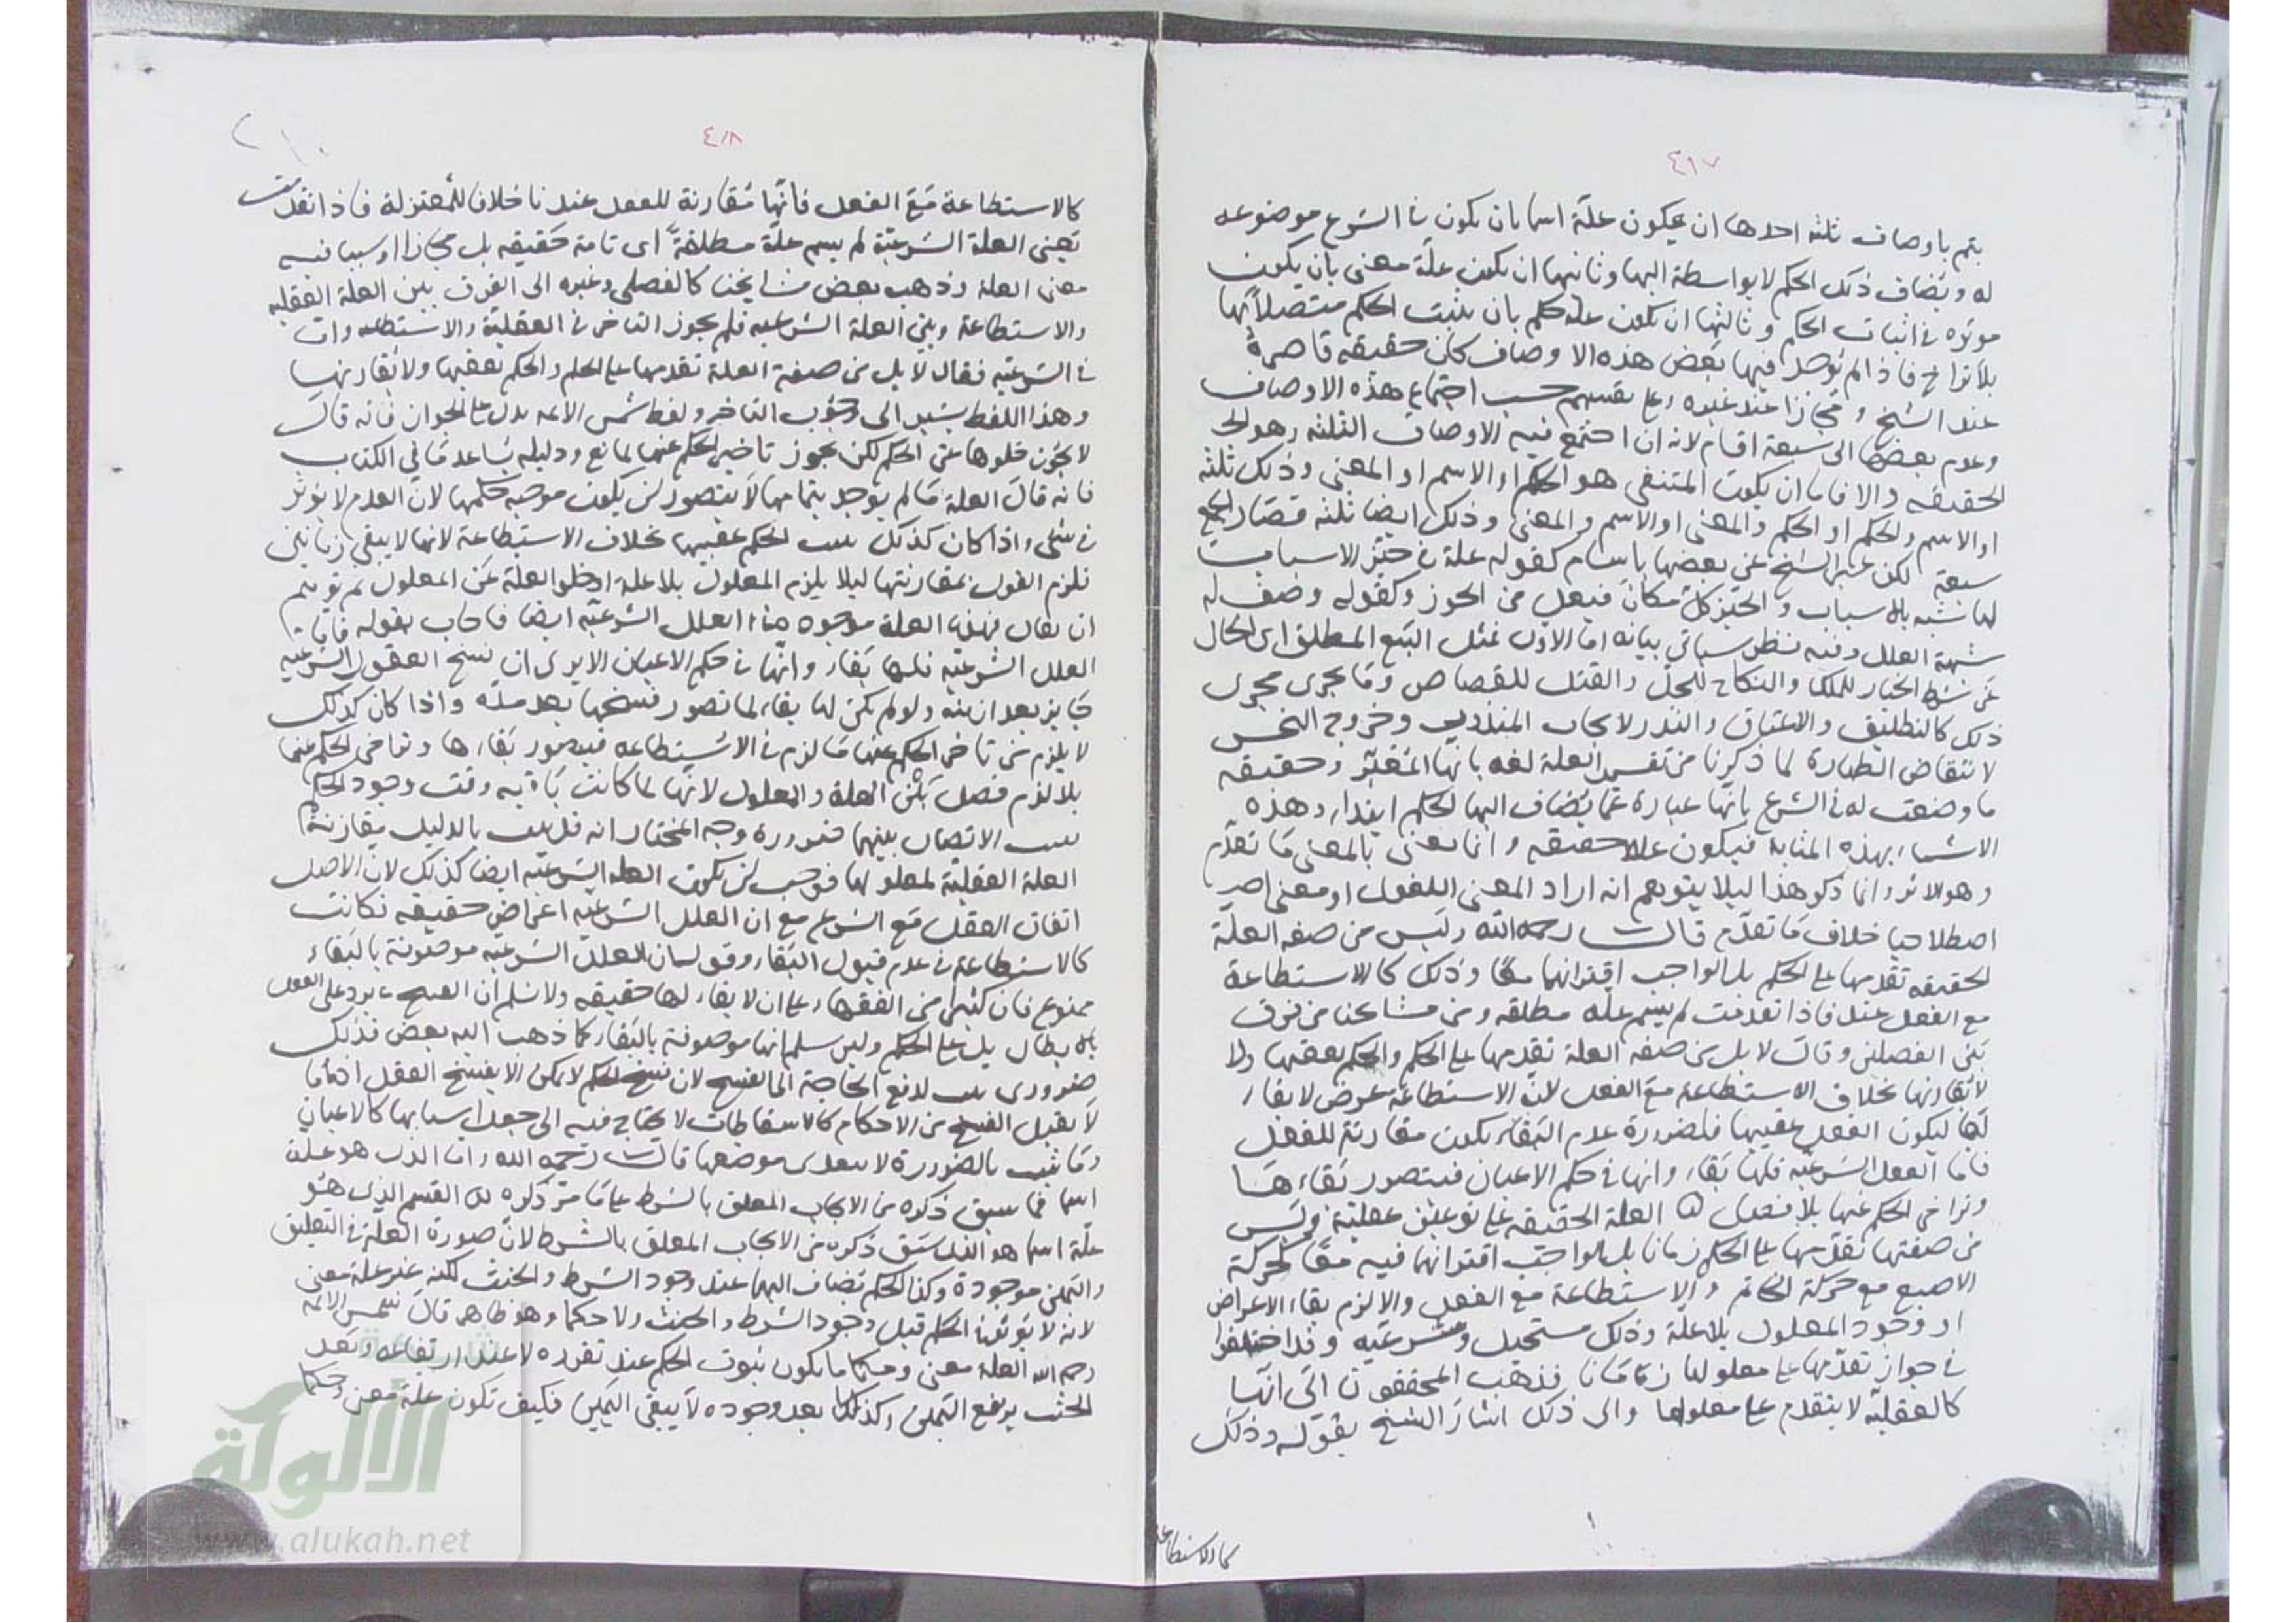 ٤١٧
يتم باوصاف ثلثه احدها ان يكون علّة اسما بان يكون في الشرع موضوعه
له ويضاف ذلك الحكم لا بواسطة اليها وثانيها ان يكون علّة معنى بان يكون
موثره في اثبات الحكم وثالثها ان يكون علة حكم بان يثبت الحكم متصلا بها
بلا تراخ فاذا لم يوجد فيها بعض هذه الاوصاف كان حقيقه قاصرة
عند الشيخ ومجازا عند غيره وعلى تقسيم حسب اجتماع هذه الاوصاف
وعدم بعضها الى سبعة اقسام لانه ان اجتمع فيه الاوصاف الثلثه وهو
الحقيقه والا فاما ان يكون المنتفى هو الحكم او الاسم او المعنى وذلك ثلثه
او الاسم والحكم او الحكم والمعنى او الاسم والمعنى وذلك ايضا ثلثه فصار الجميع
سبعة لكن عبر الشيخ عن بعضها باسام كقوله علة في حيّز الاسباب
لها شبه بالاسباب والحيّز كل مكان فيعل من الحوز وكقوله وصف له
شبهة العلل وفيه نظر سياتي بيانه اما الاول فمثل البيع المطلق اى الخال
عن شرط الخيار للملك والنكاح للحل والقتل للقصاص وما يجرى مجرى
ذلك كالتطليق والاعتاق والنذر لايجاب المنذور وخروج النجس
لانتقاض الطهارة لما ذكرنا من تفسير العلة لغه بانها المغيّر وحقيقه
ما وضعت له في الشرع بانها عبارة عما يضاف اليها الحكم ابتداء وهذه
الاشياء بهذه المثابة فيكون عللا حقيقه وانا نعنى بالمعنى ما تقدّم
وهو الاثر وانما ذكر هذا ليلا يتوهم انه اراد المعنى اللغوى او معنى اخر
اصطلاحيا خلاف ما تقدّم قال رحمه الله وليس من صفه العلّة
الحقيقه تقدمها على الحكم بل الواجب اقترانهما معًا وذلك كالاستطاعة
مع الفعل عندنا فاذا تقدمت لم يسم علة مطلقه ومن مشايخنا من فرق
بين الفصلين وقال لا بل من صفه العلة تقدمها على الحكم والحكم يعقبها ولا
لا يقارنها بخلاف الاستطاعة مع الفعل لانّ الاستطاعة عرض لا بقاء
لها ليكون الفعل عقيبها فلضرورة عدم البقاء يكون مقارنة للفعل
فاما العلل الشرعيه فلها بقاء وانها في حكم الاعيان فيتصور بقاءها
وتراخى الحكم عنها بلا فصل العلة الحقيقه على نوعين عقليّة وليس
من صفتها تقدّمها على الحكم زمانا بل الواجب اقترانهما فيه معًا كحركة
الاصبع مع حركة الخاتم والاستطاعة مع الفعل والا لزم بقاء الاعراض
او وجود المعلول بلا علة وذلك مستحيل وشرعيه وقد اختلفوا
في جواز تقدّمها على معلولها زمانا فذهب المحققون الى انّها
كالعقليّه لا يتقدم على معلولها والى ذلك اشار الشيخ بقوله وذلك
كالاستطاعة
٤١٨
٢١٠
كالاستطاعة مع الفعل فانّها مقارنة للفعل عندنا خلافا للمعتزلة فاذا تقدمت
يعنى العلة الشرعيّة لم يسم علّة مطلقةً اى تامة حقيقه بل مجازا او سببا فيه
معنى العلة وذهب بعض مشايخنا كالفضلى وغيره الى الفرق بين العلة العقليه
والاستطاعة وبين العلة الشرعيه فلم يجوز التاخر في العقليّة والاستطاعه وات
في الشرعيّه فقال لا بل من صفة العلة تقدمها على الحكم والحكم يعقبها ولا يقارنها
وهذا اللفظ يشير الى وجوب التاخر ولفظ شمس الائمه يدل على الجواز فانه قال
لا يجوز خلوها عن الحكم لكن يجوز تاخير الحكم عنها لمانع ودليله يساعد ما في الكتاب
فانه قال العلة ما لم يوجد بتمامها لا يتصور ان يكون موجبه حكمها لان العدم لا يوثر
في شئ واذا كان كذلك يثبت الحكم عقيبها بخلاف الاستطاعة لانها لا يبقى زمانين
فلزم القول بمقارنتها ليلا يلزم المعلول بلا علة او خلو العلة عن المعلول ثم توهم
ان يقال فهذه العلة موجوده في العلل الشرعيّه ايضا فاجاب بقوله فاما
العلل الشرعيّه فلها بقاء وانّها في حكم الاعيان الا يرى ان فسخ العقود الشرعيه
جايز بعد ازمنه ولو لم يكن لها بقاء لما تصور فسخها بعد مدّه واذا كان كذلك
لا يلزم من تاخر الحكم عنها ما لزم في الاستطاعه فيتصور بقاءها وتراخى الحكم عنها
بلا لزوم فصل بين العلة والمعلول لانّها لما كانت باقيه وقت وجود الحكم
يثبت الاتصال بينهما ضرورة وجه المختار انه قد ثبت بالدليل مقارنة
العلة العقليّة لمعلولها فوجب ان يكون العله الشرعيّه ايضا كذلك لان الاصل
اتفاق العقل مع الشرع مع ان العلل الشرعيّه اعراض حقيقه فكانت
كالاستطاعة في عدم قبول البقاء وقولهم بان العلل الشرعيّه موصوفة بالبقاء
ممنوع فان كثيرا من الفقهاء على ان لا بقاء لها حقيقه ولا نسلم ان الفسخ يرد على العقد
بالابطال بل على الحكم ولين سلم انها موصوفة بالبقاء كما ذهب اليه بعض فذلك
ضرورى ثبت لدفع الحاجة الى الفسخ لان فسخ الحكم لا يمكن الا بفسخ العقد اما ما
لا يقبل الفسخ من الاحكام كالاسقاطات لا يحتاج فيه الى جعل اسبابها كالاعيان
وما ثبت بالضرورة لا يتعدى موضعها قال رحمه الله واما الذى هو علة
اسما فما سبق ذكره من الايجاب المعلق بالشرط على ما مرّ ذكره القسم الذى هو
علّة اسما هو الذى سبق ذكره من الايجاب المعلق بالشرط لانّ صورة العلّة في التعليق
واليمين موجودة وكذا الحكم يضاف اليها عند وجود الشرط والحنث لكنه غير علة معنى
لانه لا يوثر في الحكم قبل وجود الشرط والحنث ولا حكما وهو ظاهر قال شمس الائمه
رحمه الله العلة معنى وحكما ما يكون ثبوت الحكم عند تقرره لا عند ارتفاعه وبعد
الحنث يرتفع اليمين وكذلك بعد وجوده لا يبقى اليمين فكيف تكون علّة معنى وحكما
شبكة
الألوكة
www.alukah.net